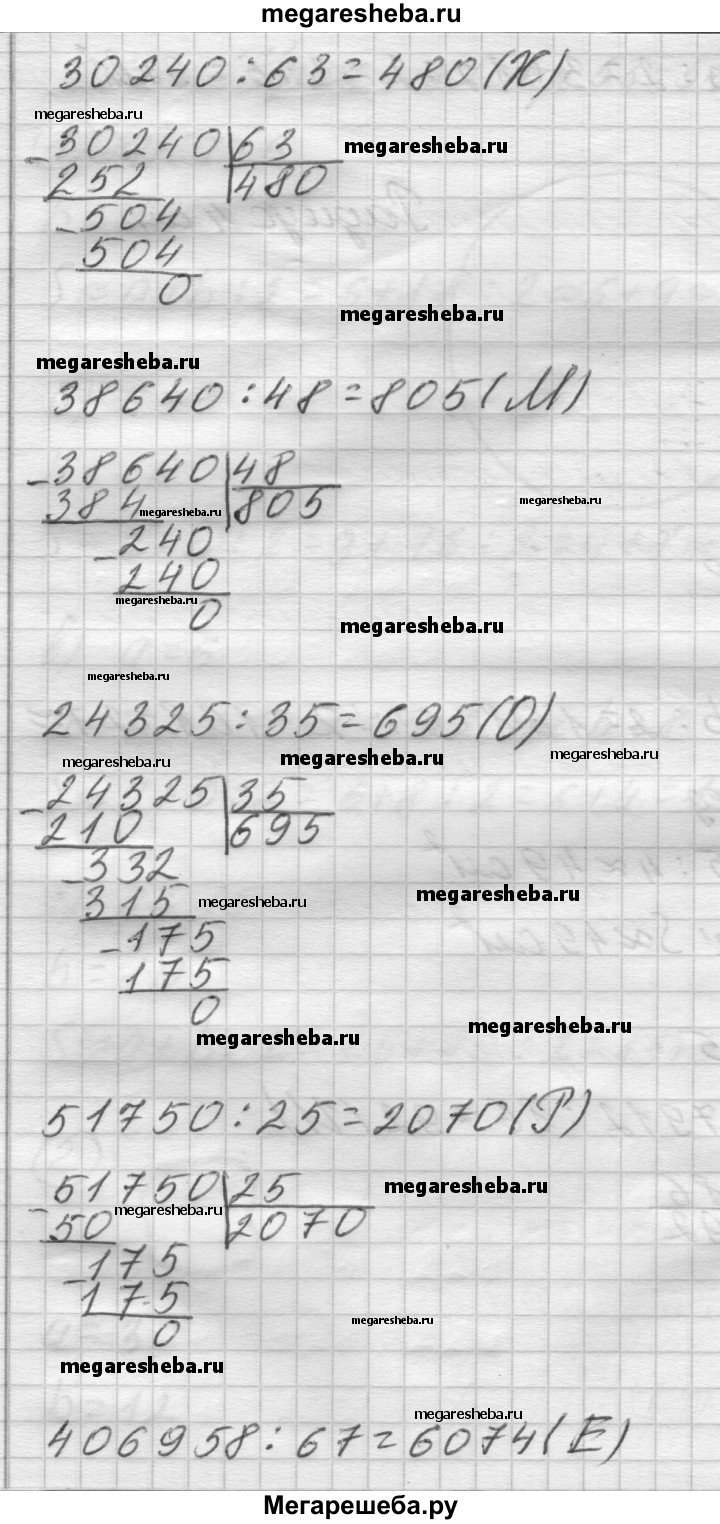 megaresheba.ru
30240:63=480(Ж)
megaresheba.ru
30240 63
megaresheba.ru
252 480
504
504
0
megaresheba.ru
megaresheba.ru
38640:48=805(М)
38640 48
384 805
megaresheba.ru
megaresheba.ru
240
240
megaresheba.ru
0
megaresheba.ru
megaresheba.ru
24325:35=695(О)
megaresheba.ru
megaresheba.ru
megaresheba.ru
24325 35
210 695
332
315
megaresheba.ru
megaresheba.ru
175
175
0
megaresheba.ru
megaresheba.ru
51750:25=2070(Р)
51750 25
megaresheba.ru
50 2070
megaresheba.ru
175
175
0
megaresheba.ru
megaresheba.ru
megaresheba.ru
406958:67=6074(Е)
Мегарешеба.ру